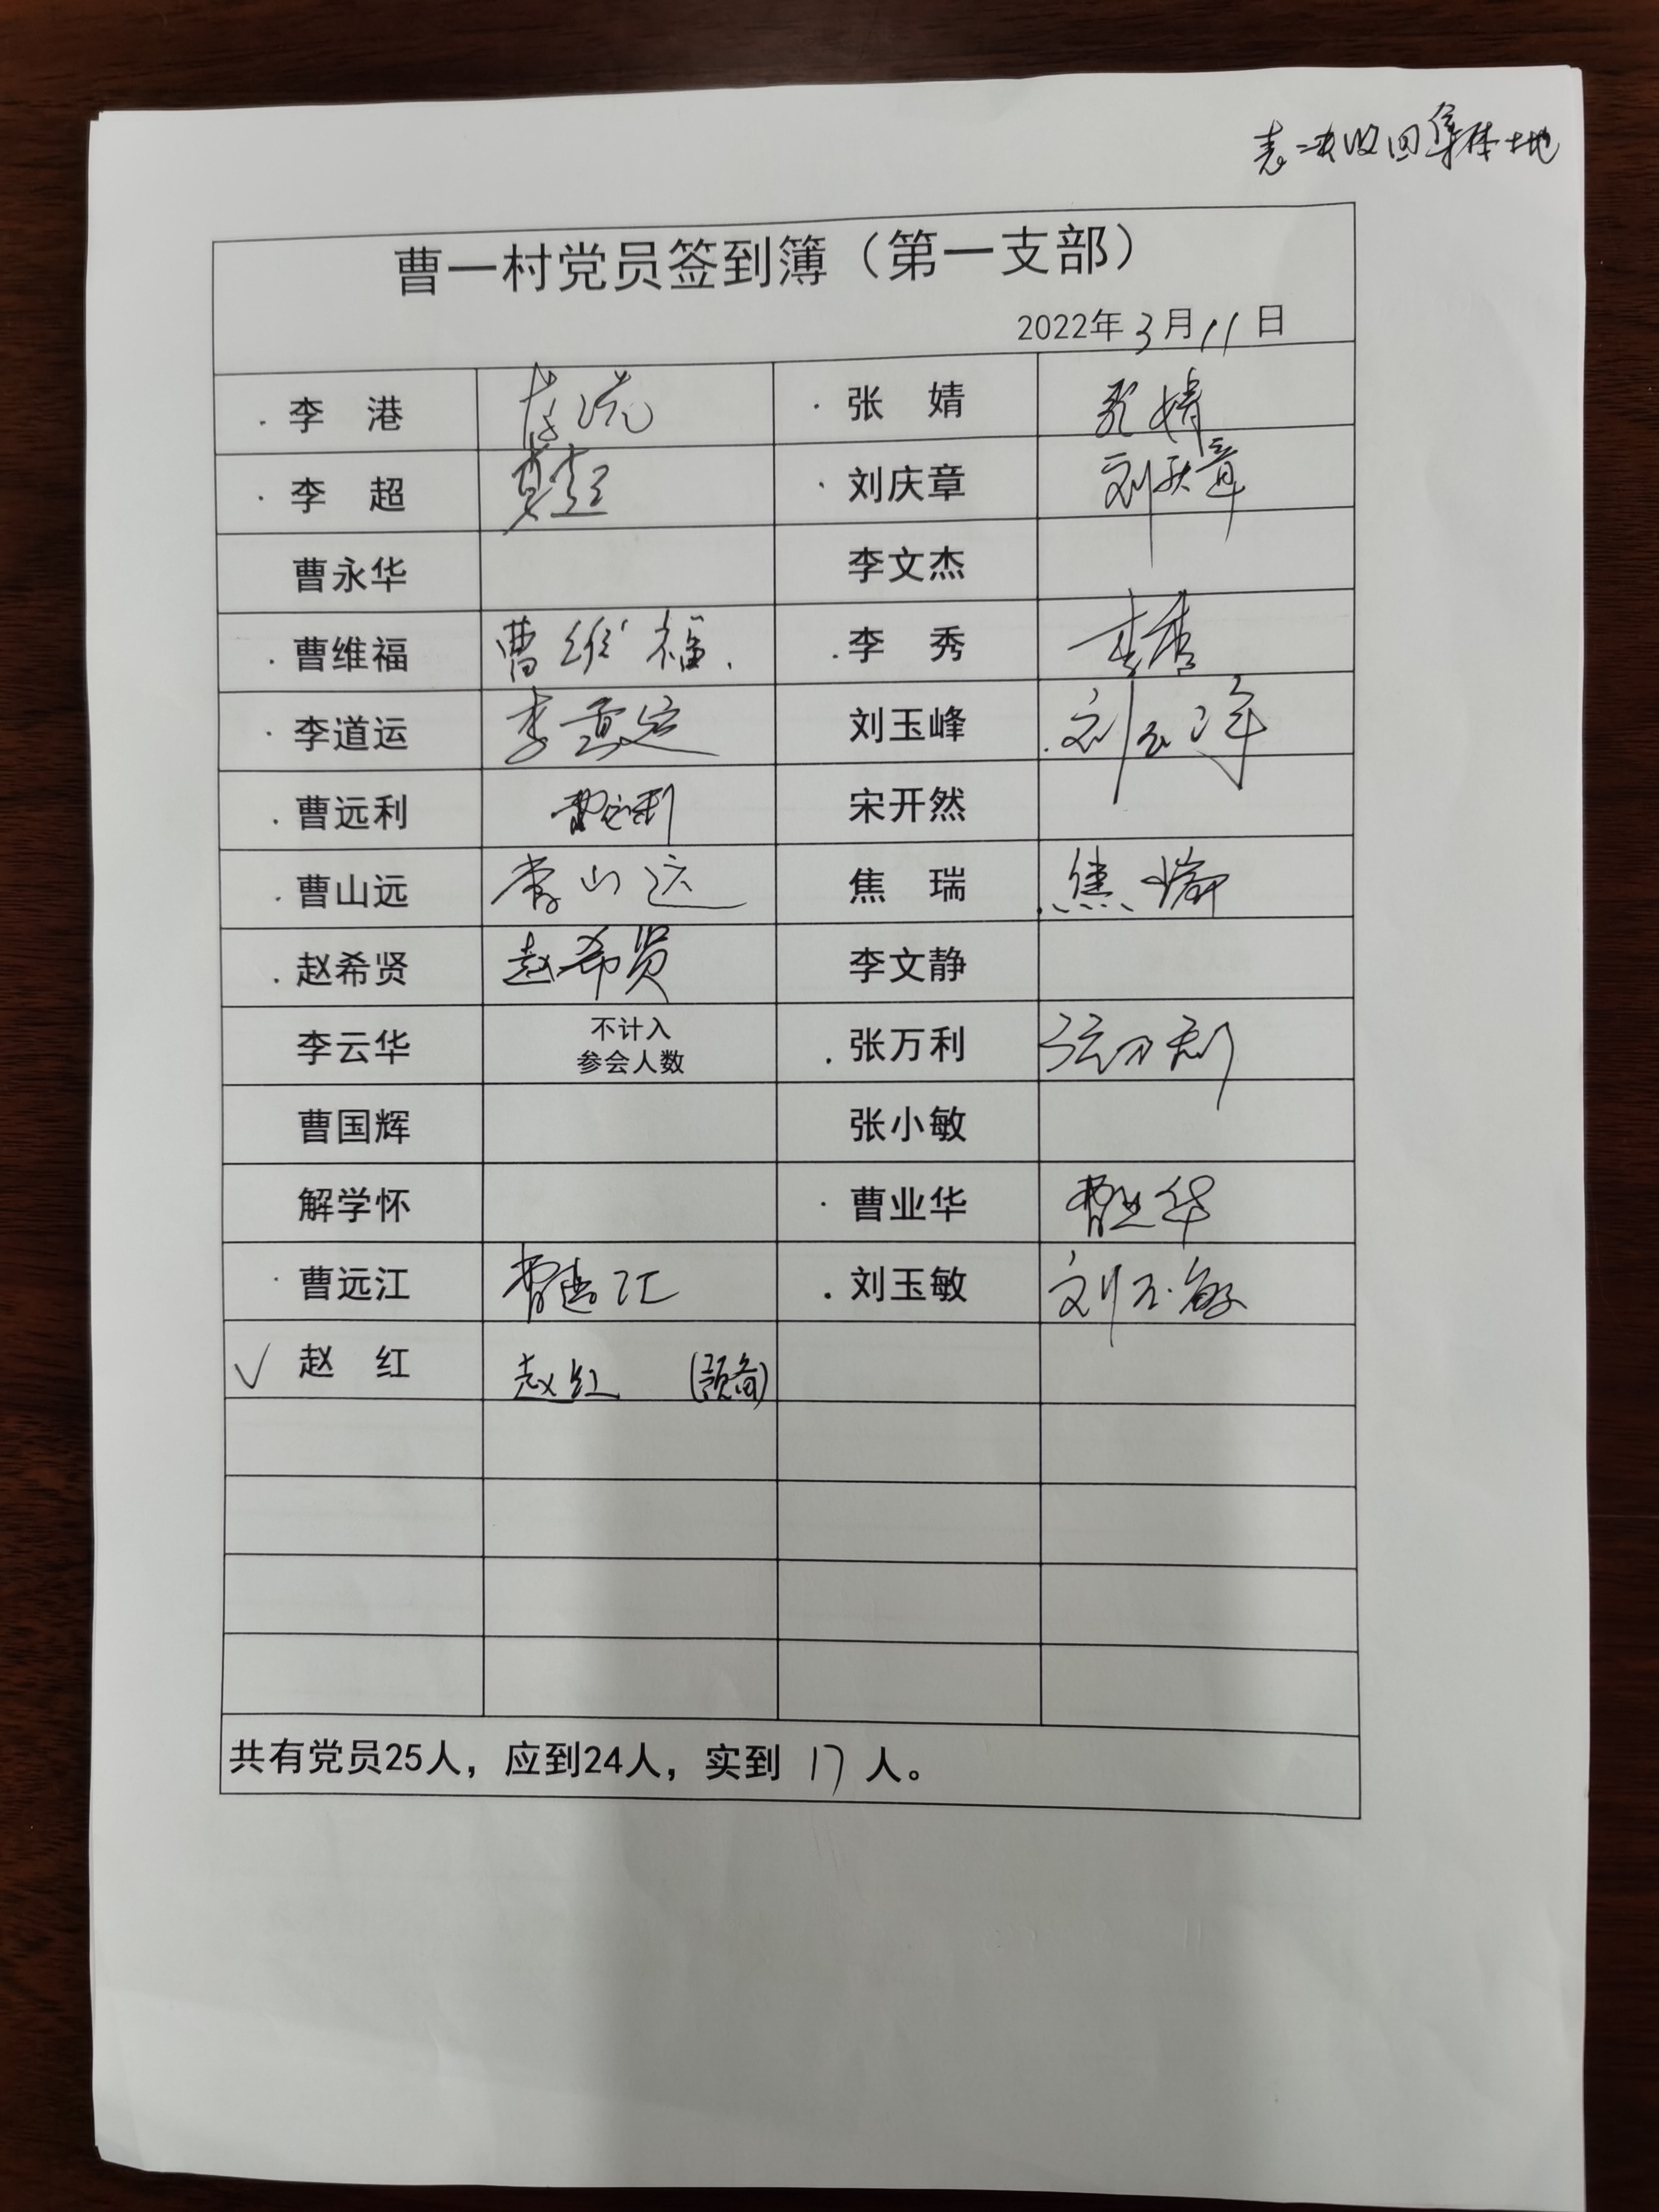 表决收回集体土地
曹一村党员签到簿（第一支部）
2022年3月11日
李 港 李港 张 婧 张婧
李 超 李超 刘庆章 刘庆章
曹永华 李文杰
曹维福 曹维福 李 秀 李秀
李道运 李道运 刘玉峰 刘玉峰
曹远利 曹远利 宋开然
曹山远 曹山远 焦 瑞 焦瑞
赵希贤 赵希贤 李文静
李云华 不计入 张万利 张万利
参会人数
曹国辉 张小敏
解学怀 曹业华 曹业华
曹远江 曹远江 刘玉敏 刘玉敏
✓ 赵 红 赵红 (预备)
共有党员25人，应到24人，实到 17 人。